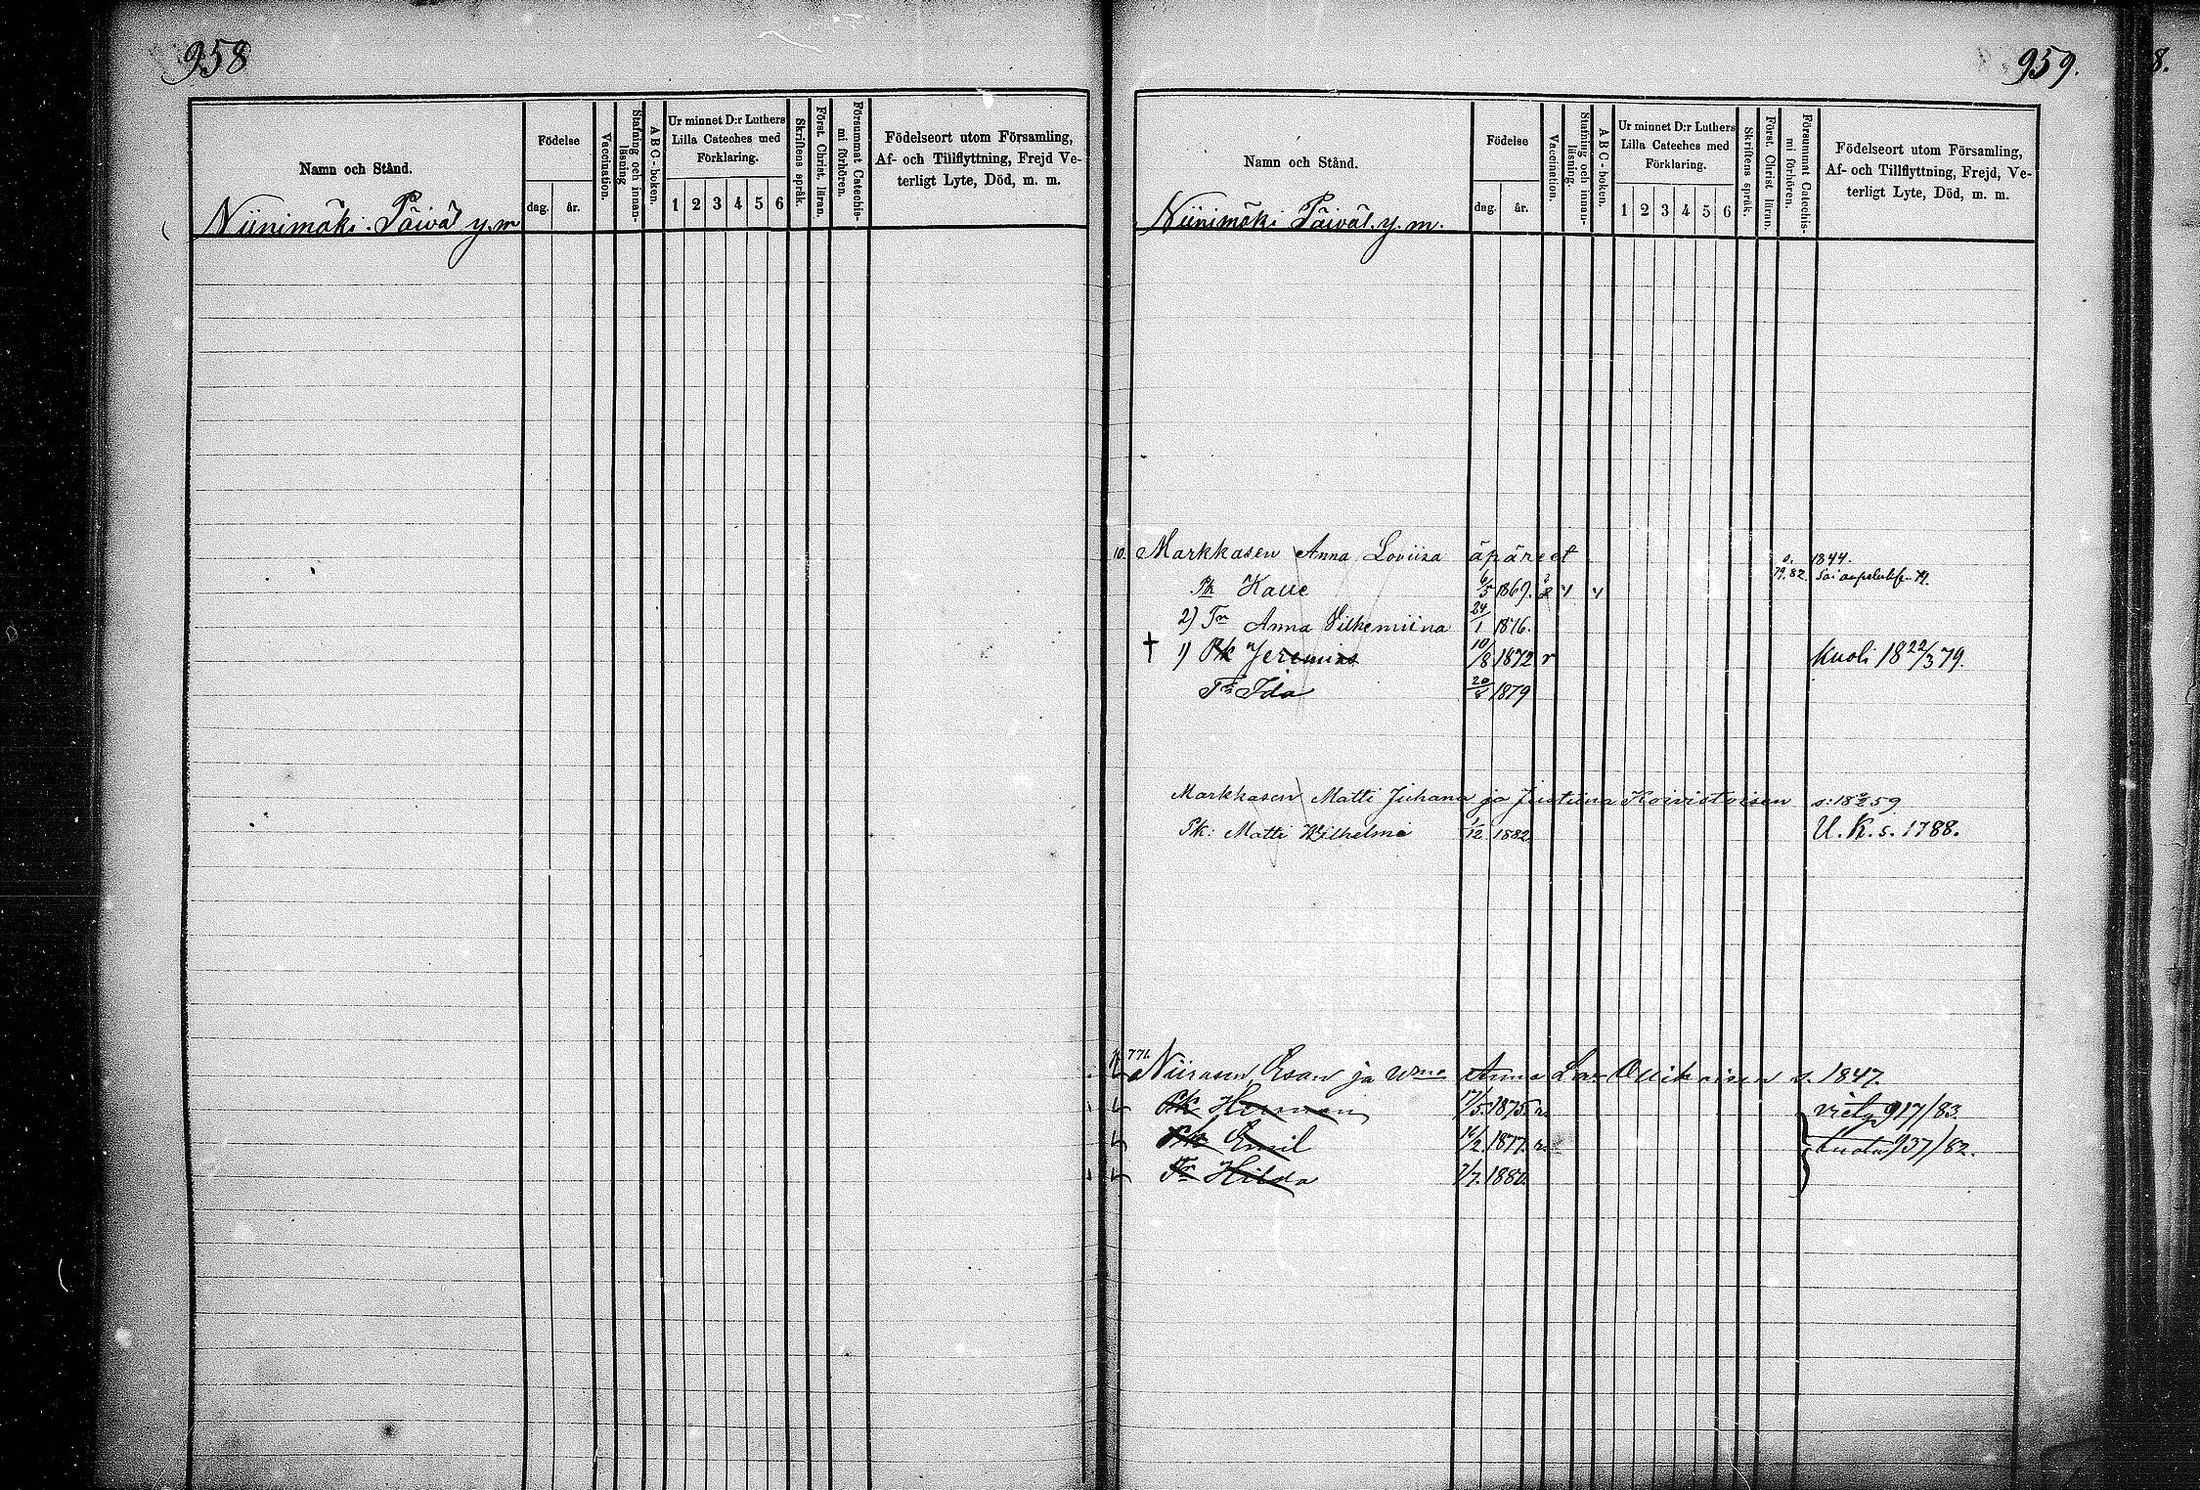 958
Namn och Stånd.
Födelse
dag.
år.
Vaccination.
Stafning och innan-
läsning
ABC-boken.
Ur minnet D:r Luthers
Lilla Cateches med
Förklaring.
1 2 3 4 5 6
Skriftens språk.
Först. Christ. läran.
Försummat Catechis-
mi förhören.
Födelseort utom Församling,
Af- och Tillflyttning, Frejd Ve-
terligt Lyte, Död, m. m.
Niinimäki Päiväl y. m
959.
8.
Namn och Stånd.
Födelse
dag.
år.
Vaccination.
Stafning och innan-
läsning.
ABC-boken.
Ur minnet D:r Luthers
Lilla Cateches med
Förklaring.
1 2 3 4 5 6
Skriftens språk.
Först. Christ läran.
Försummat Catechis-
mi förhören.
Födelseort utom Församling,
Af- och Tillflyttning, Frejd, Ve-
terligt Lyte, Död, m. m.
Niinimäki Päiväl. y. m.
10. Markkasen Anna Loviisa äpäreet s. 1844.
Pk Kalle 6/5 1867. 79. 82.
2) Tr Anna Vilhemiina 24/1 1876.
† 1) Pk Jeremias 10/8 1872 r Kuoli 18 22/3 79.
Tr Ida 20/8 1879
Markkasen Matti Juhana ja Justiina Koivistoisen s: 18 2/2 59
Pk: Matti Wilhelmi 1/12 1882 U. K. s. 1788.
771. Niirasen Esan ja Wmo Anna Lov Ollikaisen s. 1847.
Pk Herman 17/5 1875. r. viety 917/83
Pk Emil 16/2 1877. r. tuotu 937/82.
Tr Hilda 7/7 1880.